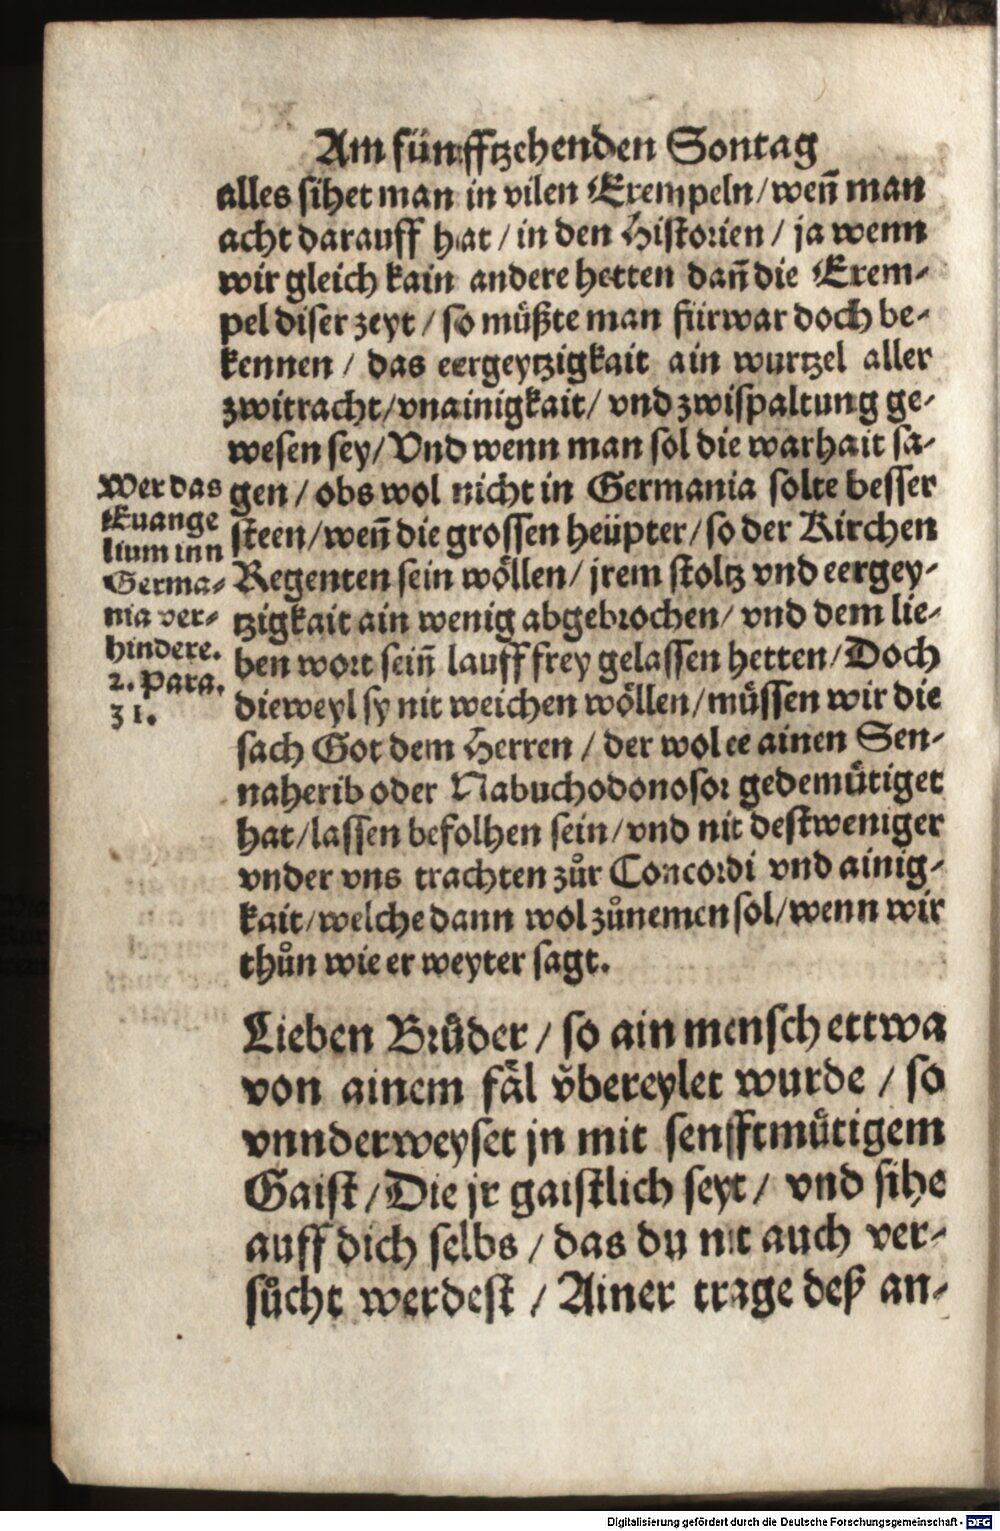 Am fünfftzehenden Sontag
alles sihet man in vilen Exempeln/wen̄ man
acht darauff hat/in den Historien/ja wenn
wir gleich kain andere hetten dan̄ die Exem-
pel diser zeyt/so müßte man fürwar doch be-
kennen/das eergeytzigkait ain wurtzel aller
zwitracht/vnainigkait/vnd zwispaltung ge-
wesen sey/Vnd wenn man sol die warhait sa-
gen/obs wol nicht in Germania solte besser
steen/wen̄ die grossen heüpter/so der Kirchen
Regenten sein wöllen/jrem stoltz vnd eergey-
tzigkait ain wenig abgebrochen/vnd dem lie-
ben wort sein̄ lauff frey gelassen hetten/Doch
dieweyl sy nit weichen wöllen/müssen wir die
sach Got dem Herren/der wol ee ainen Sen-
naherib oder Nabuchodonosor gedemütiget
hat/lassen befolhen sein/vnd nit destweniger
vnder vns trachten zůr Concordi vnd ainig-
kait/welche dann wol zůnemen sol/wenn wir
thůn wie er weyter sagt.
Wer das
Euange
lium inn
Germa-
nia ver-
hindere.
2. Para.
31.
Lieben Brůder/so ain mensch ettwa
von ainem fäl v̌bereylet wurde/so
vnnderweyset jn mit sensfftmůtigem
Gaist/Die jr gaistlich seyt/vnd sihe
auff dich selbs/das du nit auch ver-
sůcht werdest/Ainer trage deß an-
Digitalisierung gefördert durch die Deutsche Forschungsgemeinschaft - DFG